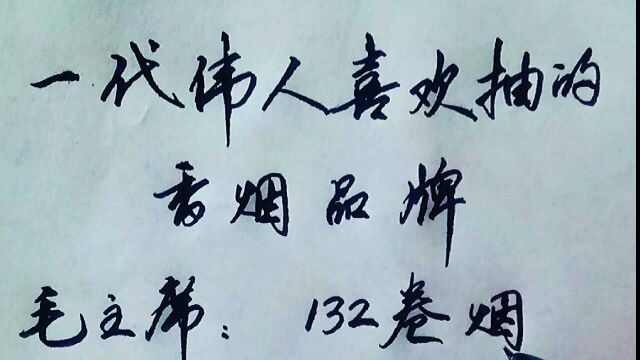 一代伟人喜欢抽的
香烟品牌
毛主席：132卷烟